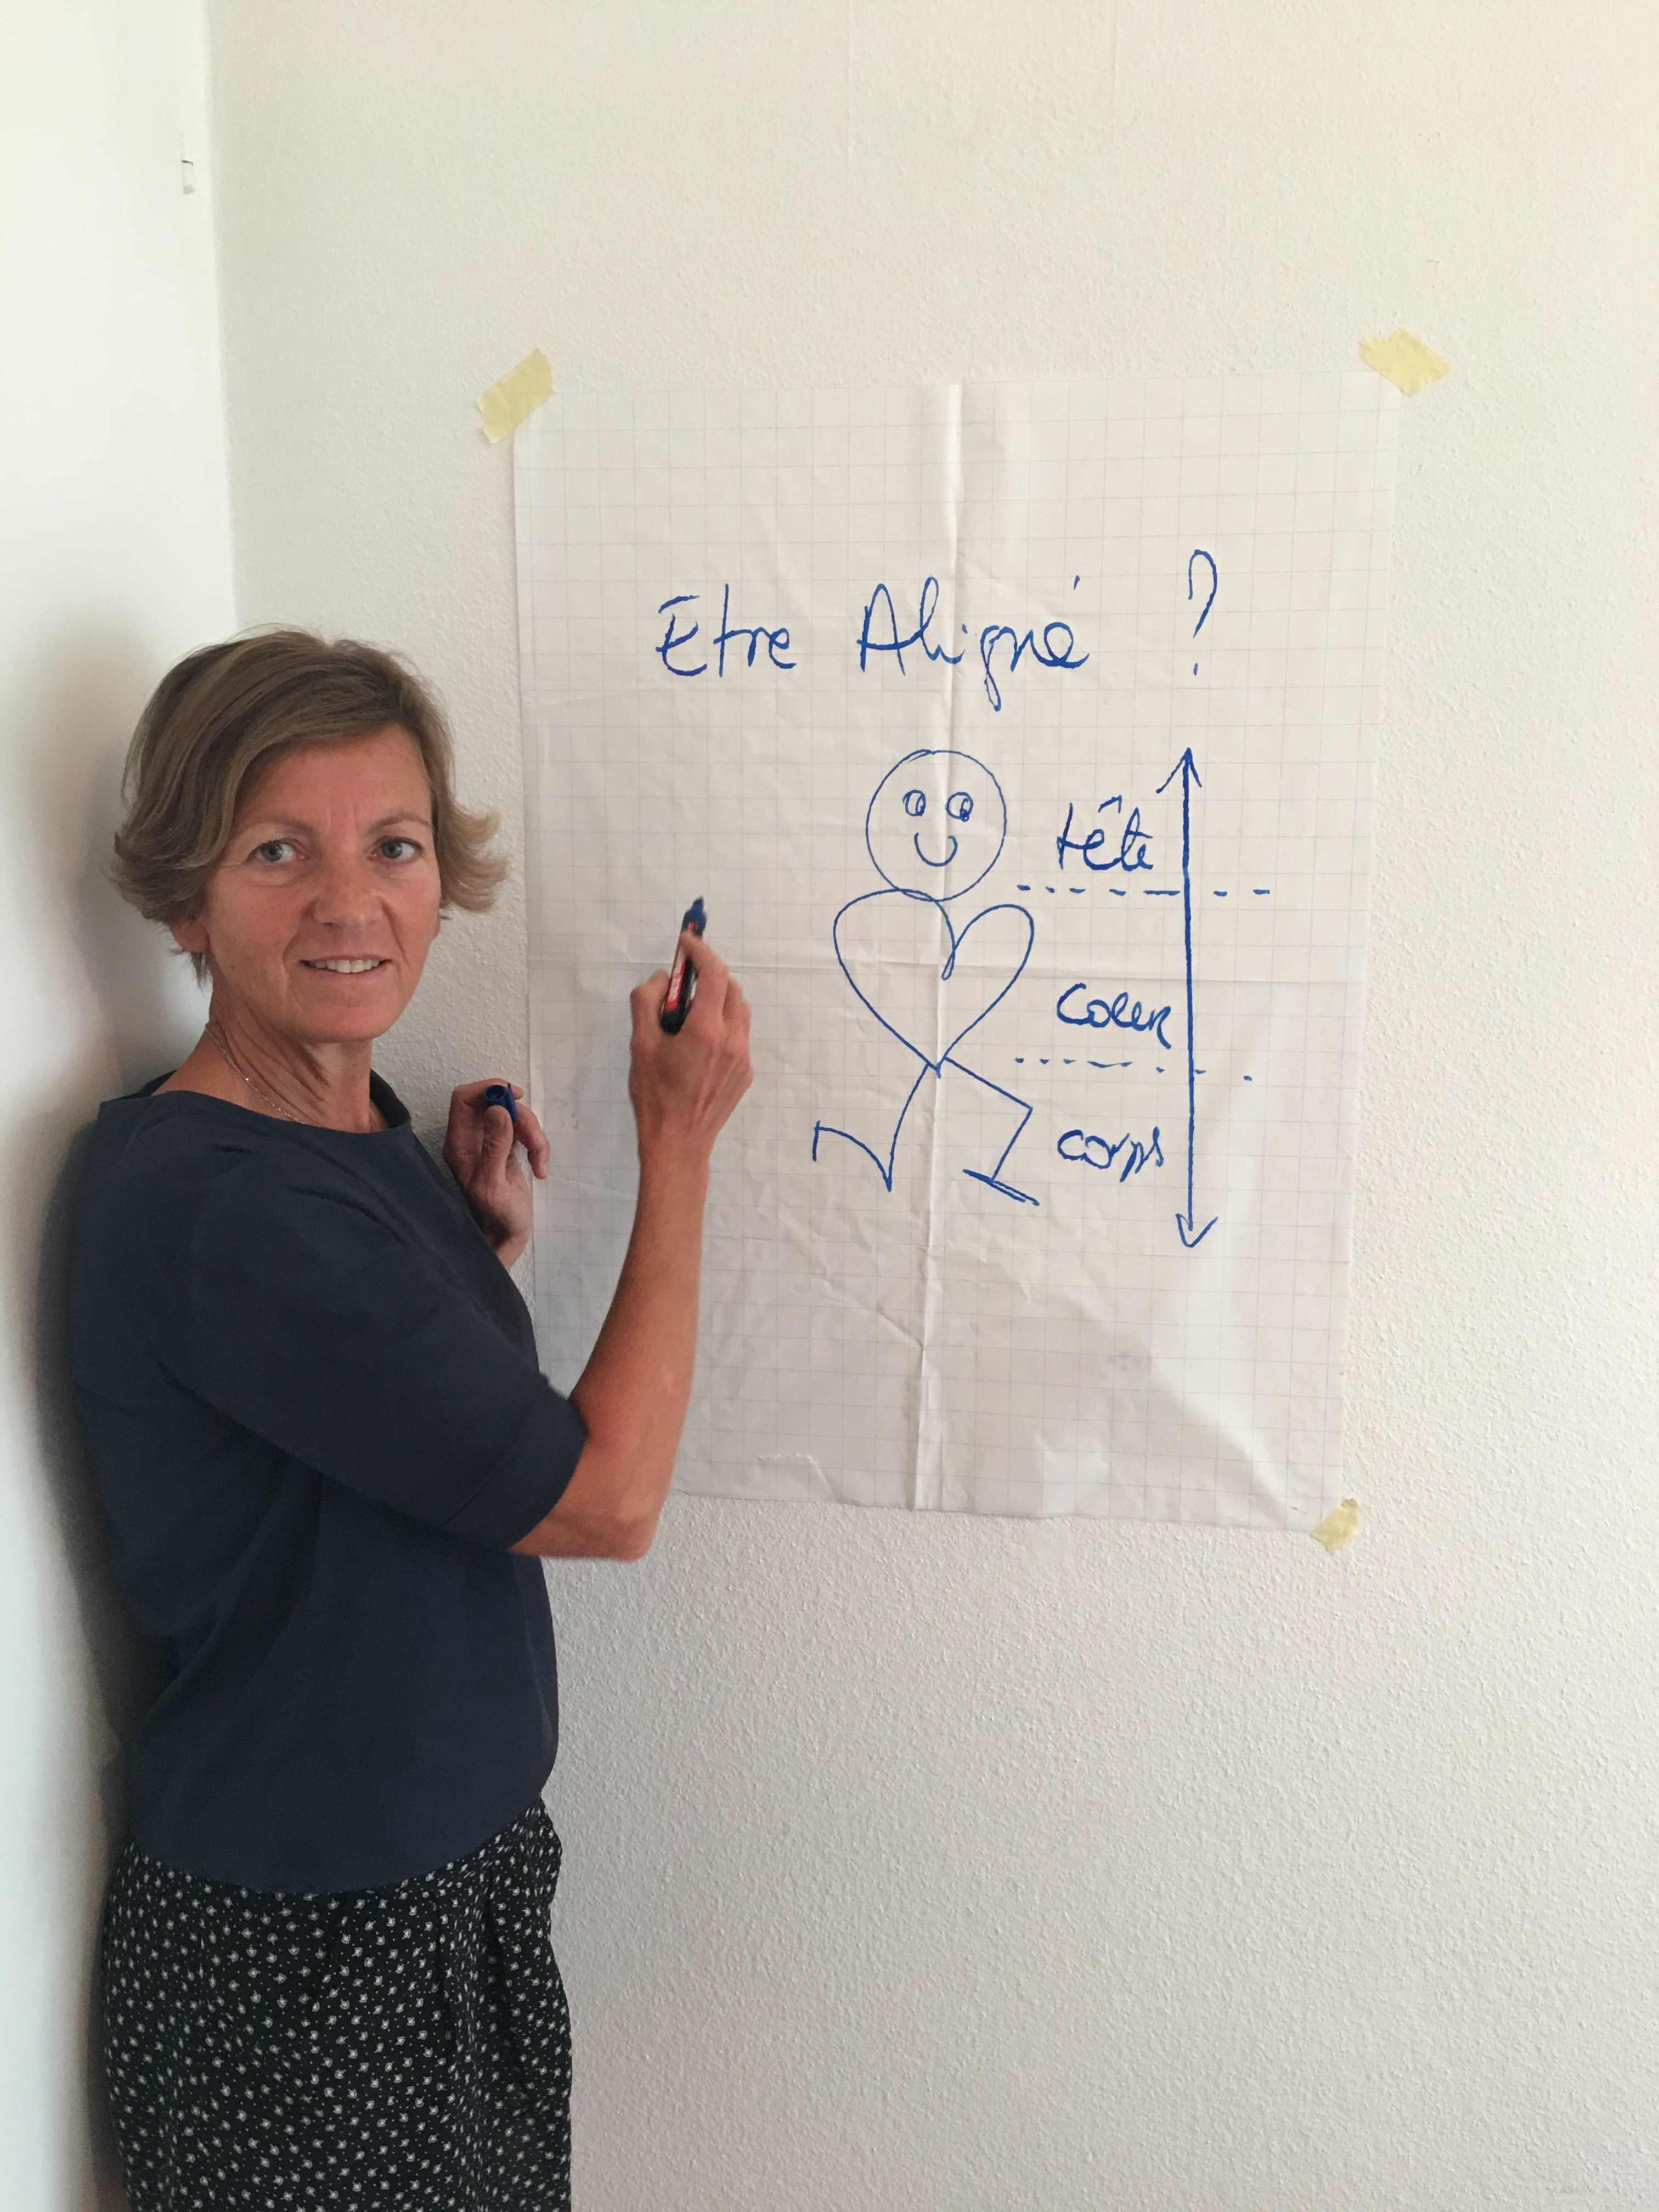 Etre Aligné ?
tête
Coeur
corps